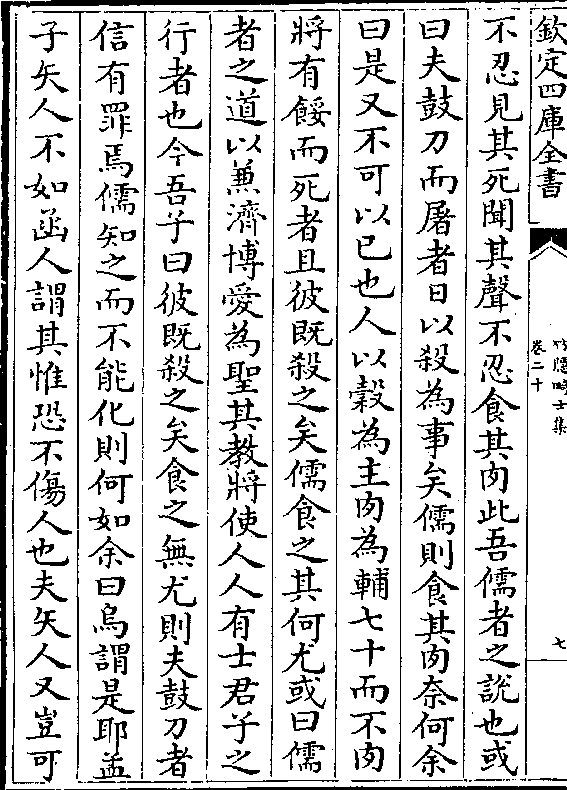 欽定四庫全書
竹隱畸士集
卷二十
七
不忍見其死聞其聲不忍食其肉此吾儒者之說也或
曰夫鼓刀而屠者日以殺為事矣儒則食其肉奈何余
曰是又不可以已也人以榖為主肉為輔七十而不肉
將有餒而死者且彼既殺之矣儒食之其何尤或曰儒
者之道以兼濟博愛為聖其教將使人人有士君子之
行者也今吾子曰彼既殺之矣食之無尤則夫鼓刀者
信有罪焉儒知之而不能化則何如余曰烏謂是耶孟
子矢人不如函人謂其惟恐不傷人也夫矢人又豈可